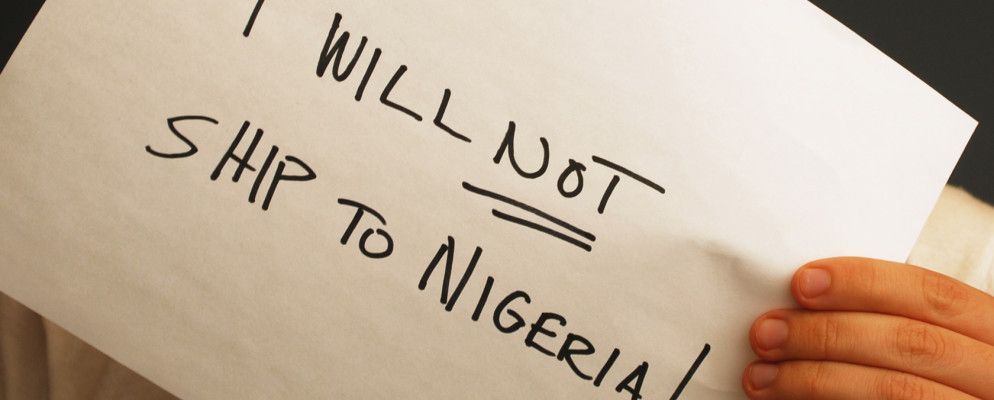 I WILL NOT
SHIP TO NIGERIA!